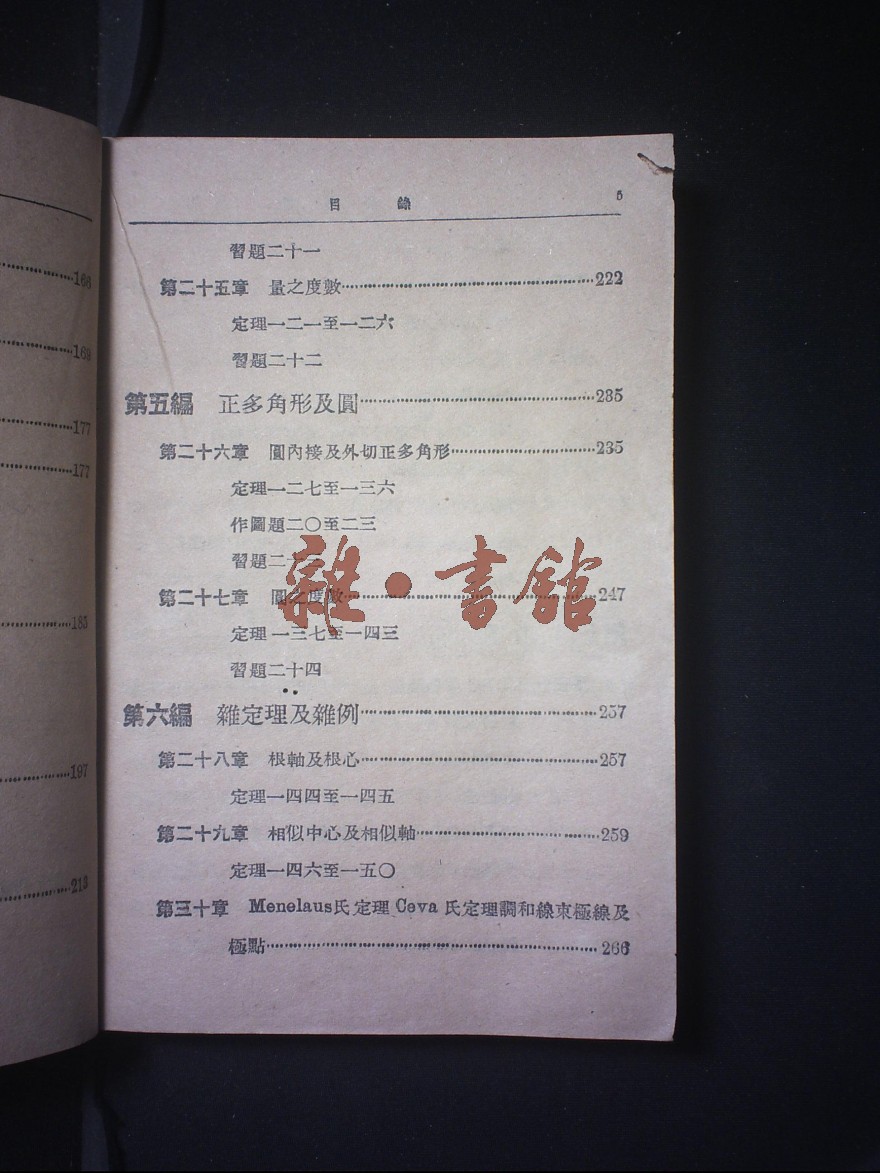 166
169
177
177
183
197
213
目錄 5
習題二十一
第二十五章 量之度數……222
定理一二一至一二六
習題二十二
第五編 正多角形及圓……235
第二十六章 圓內接及外切正多角形……235
定理一二七至一三六
作圖題二〇至二三
習題二十三
第二十七章 圓之度數……247
定理一三七至一四三
習題二十四
第六編 雜定理及雜例……257
第二十八章 根軸及根心……257
定理一四四至一四五
第二十九章 相似中心及相似軸……259
定理一四六至一五〇
第三十章 Menelaus氏定理Ceva氏定理調和線束極線及
極點……266
雜•書館